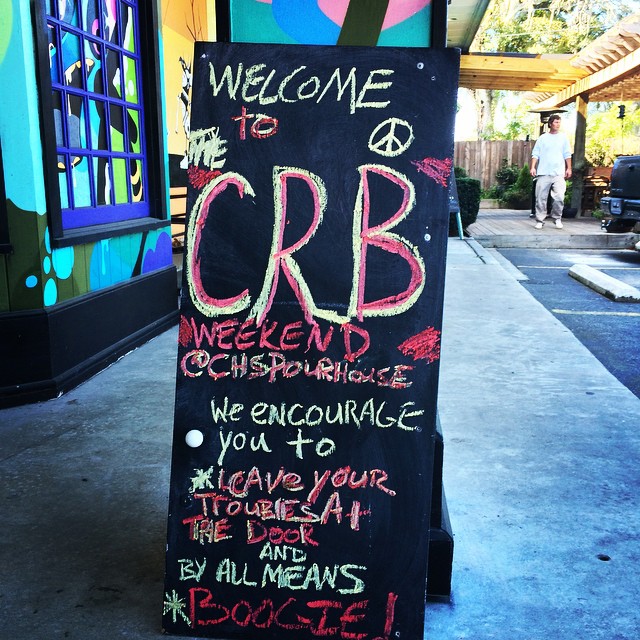 WELCOME
TO
THE
CRB
WEEKEND
@CHSPOURHOUSE
WE ENCOURAGE
YOU TO
*LEAVE YOUR
TROUBLES AT
THE DOOR
AND
BY ALL MEANS
*BOOGIE!